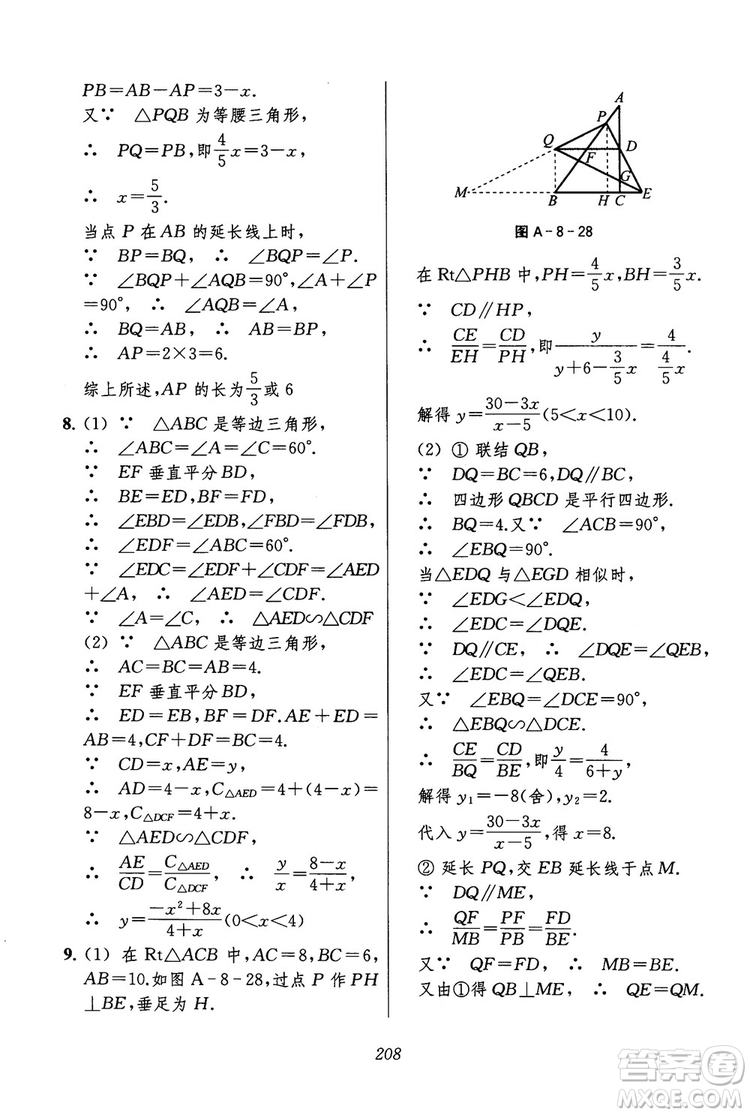 PB=AB-AP=3-x.
又∵ △PQB 为等腰三角形,
∴ PQ=PB,即4/5x=3-x,
∴ x=5/3.
当点 P 在 AB 的延长线上时,
∵ BP=BQ, ∴ ∠BQP=∠P.
∵ ∠BQP+∠AQB=90°,∠A+∠P
=90°, ∴ ∠AQB=∠A,
∴ BQ=AB, ∴ AB=BP,
∴ AP=2×3=6.
综上所述,AP 的长为5/3或 6
8. (1) ∵ △ABC 是等边三角形,
∴ ∠ABC=∠A=∠C=60°.
∵ EF 垂直平分 BD,
∴ BE=ED,BF=FD,
∴ ∠EBD=∠EDB,∠FBD=∠FDB,
∴ ∠EDF=∠ABC=60°.
∵ ∠EDC=∠EDF+∠CDF=∠AED
+∠A, ∴ ∠AED=∠CDF.
∵ ∠A=∠C, ∴ △AED∽△CDF
(2) ∵ △ABC 是等边三角形,
∴ AC=BC=AB=4.
∵ EF 垂直平分 BD,
∴ ED=EB,BF=DF.AE+ED=
AB=4,CF+DF=BC=4.
∵ CD=x,AE=y,
∴ AD=4-x,C△AED=4+(4-x)=
8-x,C△DCF=4+x.
∵ △AED∽△CDF,
∴ AE/CD=C△AED/C△DCF ∴ y/x=8-x/4+x,
∴ y=-x²+8x/4+x(0<x<4)
9. (1) 在 Rt△ACB 中,AC=8,BC=6,
AB=10.如图 A-8-28,过点 P 作 PH
⊥BE,垂足为 H.
A
P
Q
F
D
G
M
B
H
C
E
图 A-8-28
在 Rt△PHB 中,PH=4/5x,BH=3/5x.
∵ CD∥HP,
∴ CE/EH=CD/PH,即y/y+6-3/5x=4/4/5x.
解得 y=30-3x/x-5(5<x<10).
(2) ① 联结 QB,
∵ DQ=BC=6,DQ∥BC,
∴ 四边形 QBCD 是平行四边形.
∴ BQ=4.又∵ ∠ACB=90°,
∴ ∠EBQ=90°.
当△EDQ 与△EGD 相似时,
∵ ∠EDG<∠EDQ,
∴ ∠EDC=∠DQE.
∵ DQ∥CE, ∴ ∠DQE=∠QEB,
∴ ∠EDC=∠QEB.
又∵ ∠EBQ=∠DCE=90°,
∴ △EBQ∽△DCE.
∴ CE/BQ=CD/BE,即y/4=4/6+y,
解得 y₁=-8(舍),y₂=2.
代入 y=30-3x/x-5,得 x=8.
② 延长 PQ,交 EB 延长线于点 M.
∵ DQ∥ME,
∴ QF/MB=PF/PB=FD/BE.
又∵ QF=FD, ∴ MB=BE.
又由①得 QB⊥ME, ∴ QE=QM.
208
答案圈
MXQE.COM